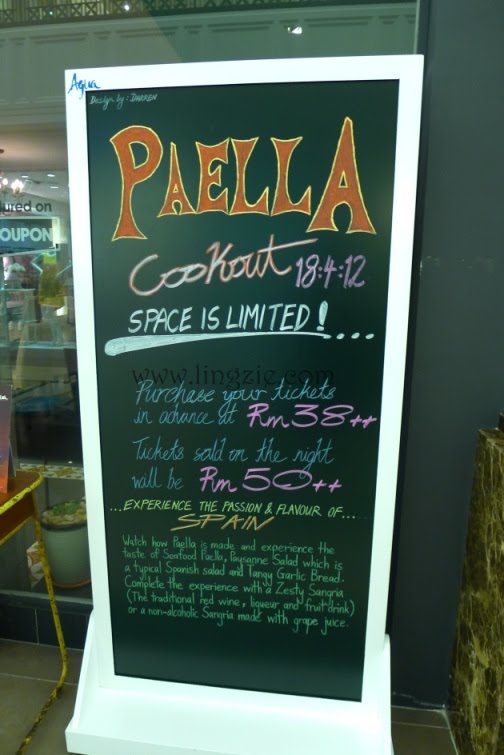 Agua
Design by: DARREN
PAELLA
Cookout 18:4:12
SPACE IS LIMITED!....
www.lingzie.com
Purchase your tickets
in advance at Rm38++
Tickets sold on the night
will be Rm50++
...EXPERIENCE THE PASSION & FLAVOUR OF...
SPAIN
Watch how Paella is made and experience the
taste of Seafood Paella, Paysanne Salad which is
a typical Spanish salad and Tangy Garlic Bread.
Complete the experience with a Zesty Sangria
(The traditional red wine, liqueur and fruit drink)
or a non-alcoholic Sangria made with grape juice.
ured on
OUPON